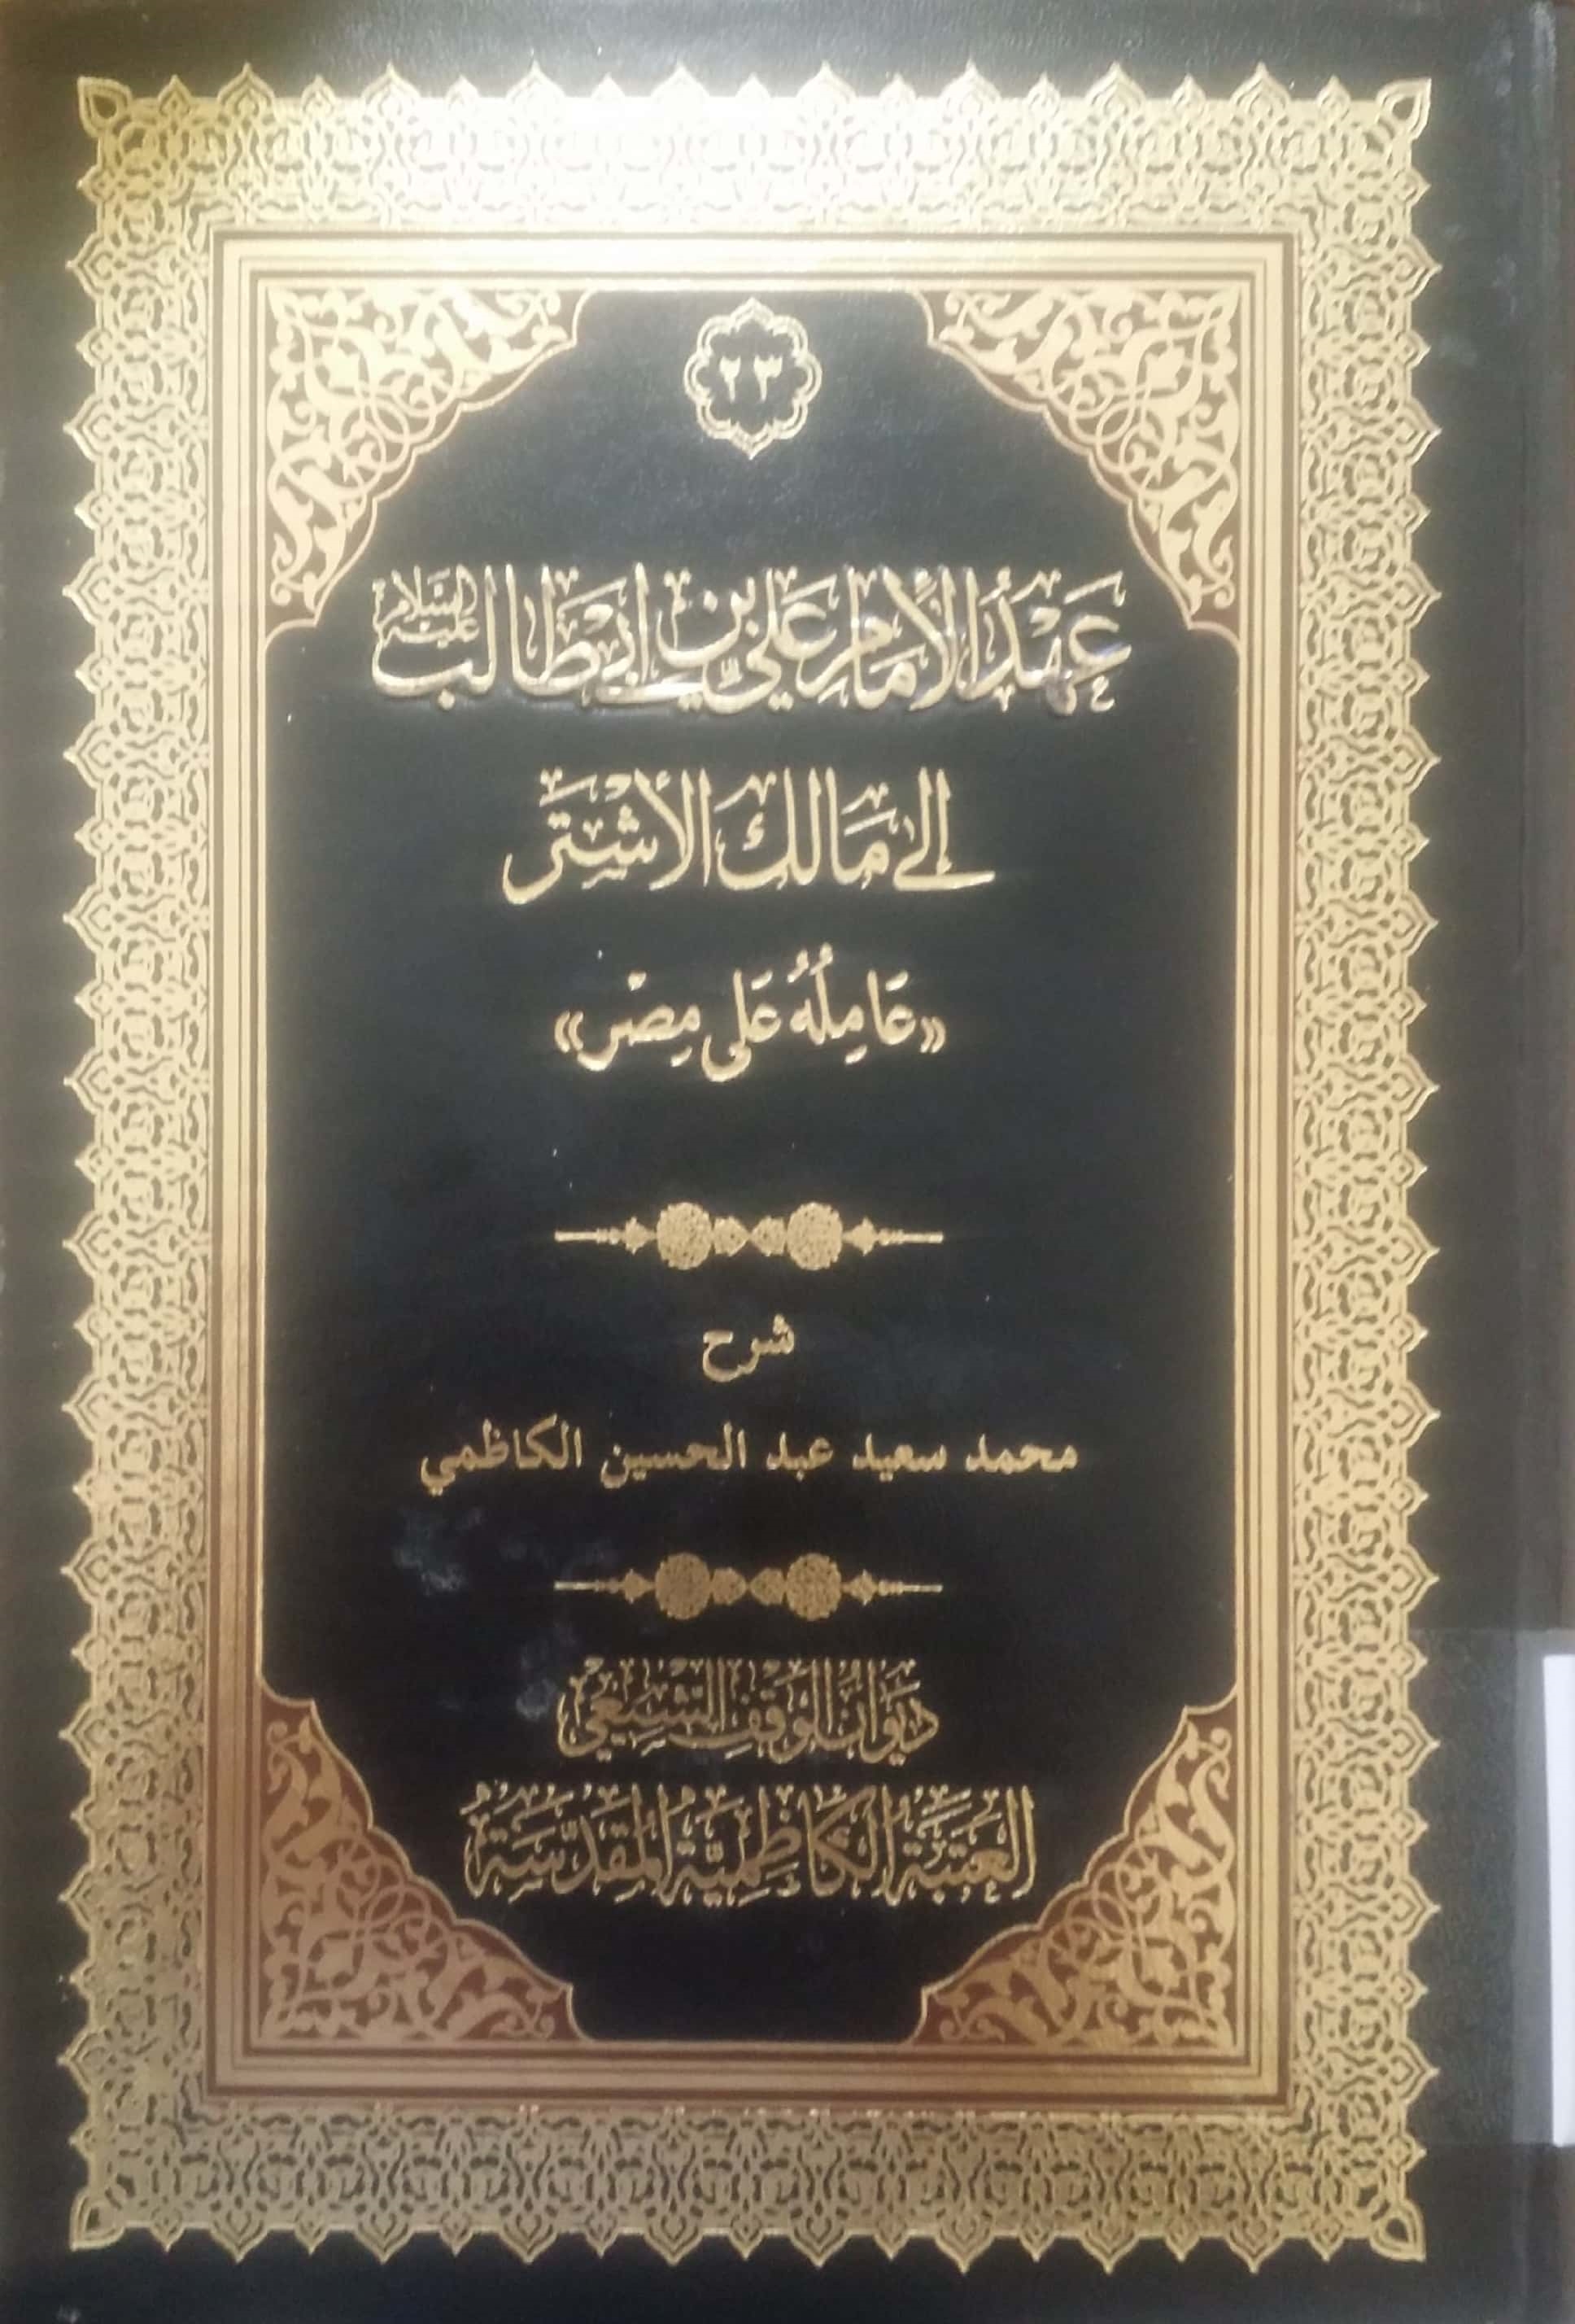 ٢٣
عَهْدُ الإِمَامِ عَلِيِّ بْنِ أَبِي طَالِب عَلَيْهِ السَّلَام
إِلَى مَالِك الأَشْتَر
«عَامِلُهُ عَلى مِصْر»
شرح
محمد سعيد عبد الحسين الكاظمي
ديوان الوقف الشيعي
العتبة الكاظمية المقدسة